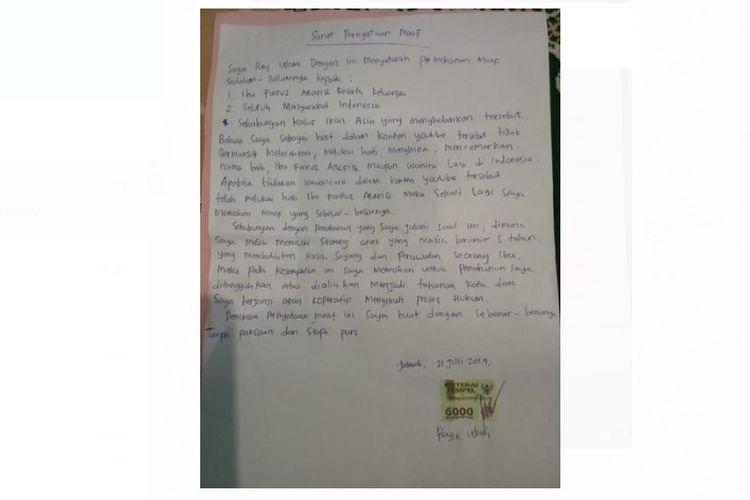 Surat Pernyataan Maaf
Saya Rey Utami Dengan Ini Menyatakan Permohonan Maaf
Sedalam-dalamnya kepada :
1. Ibu Fairuz ARAFIQ Beserta keluarga
2. Seluruh Masyarakat Indonesia
Sehubungan Kasus Ikan Asin yang menghebohkan tersebut.
Bahwa Saya Sebagai host dalam konten youtube tersebut tidak
Bermaksud Melecehkan, Melukai hati, Menghina, Mencemarkan
nama baik, Ibu Fairuz ARAFIQ Maupun Wanita Lain di Indonesia.
Apabila tindakan wawancara dalam konten youtube tersebut
telah melukai hati Ibu FAIRUZ ARAFIQ Maka Sekali Lagi Saya
Memohon Maaf yang Sebesar-besarnya.
Sehubungan dengan Penahanan yang Saya jalani Saat ini, dimana
Saya Masih Menyusui Seorang anak yang masih berumur 5 tahun.
yang Membutuhkan kasih Sayang dan Perawatan Seorang Ibu,
Maka Pada Kesempatan ini Saya Memohon untuk Penahanan Saya
ditangguhkan atau dialihkan Menjadi tahanan Kota dan
Saya berjanji akan koperatif Mengikuti Proses Hukum.
Demikian Pernyataan Maaf ini Saya buat dengan Sebenar-benarnya
Tanpa paksaan dari Siapa pun.
Jakarta, 21 Juli 2019,
METERAI
TEMPEL
6000